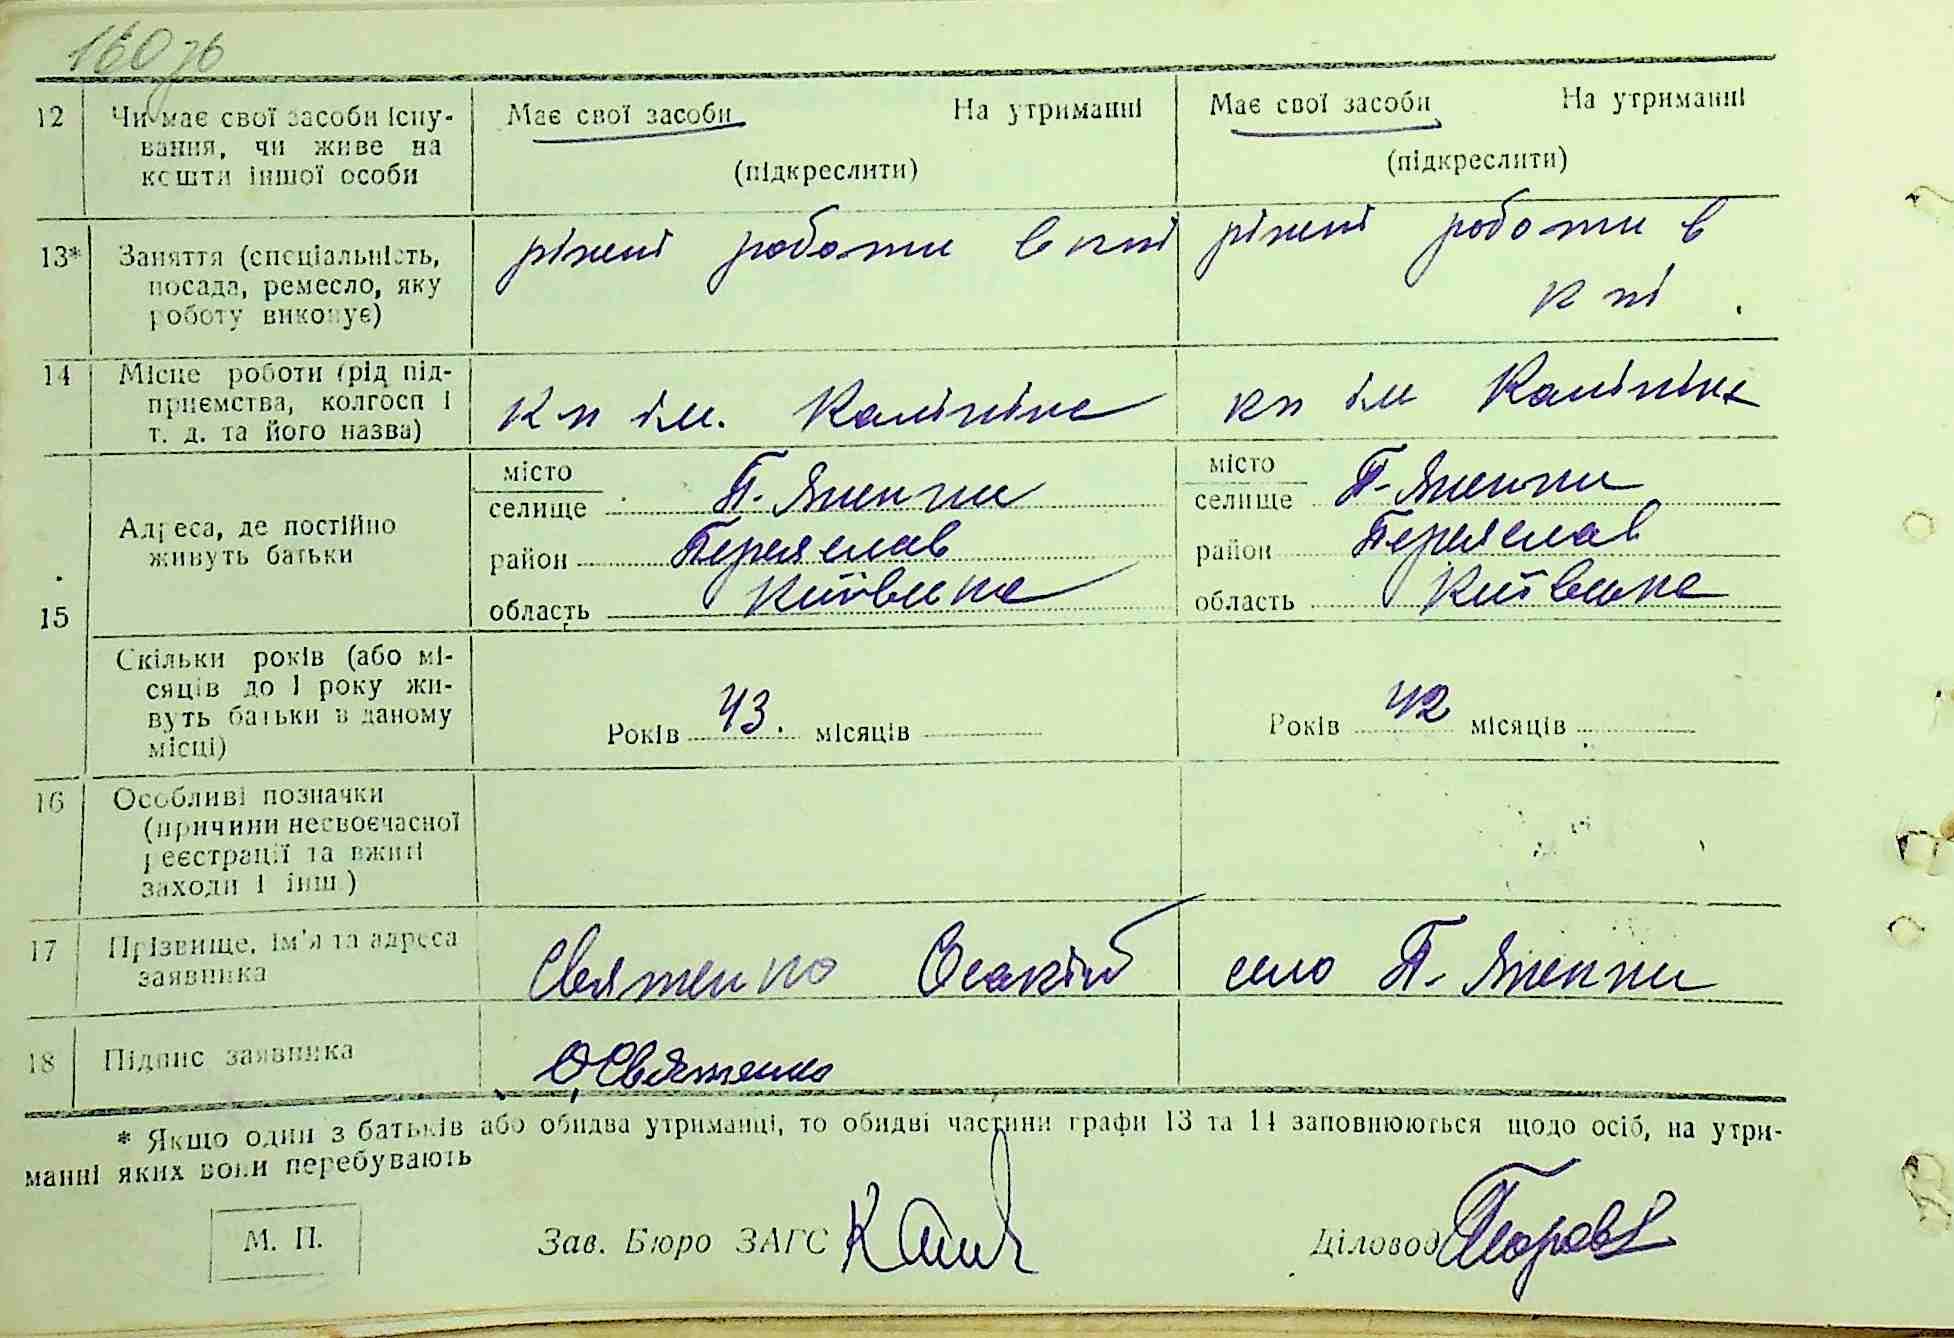 160 зв
12 Чи має свої засоби існу-
вання, чи живе на
кошти іншої особи
Має свої засоби На утриманні
(підкреслити)
Має свої засоби На утриманні
(підкреслити)
13* Заняття (спеціальність,
посада, ремесло, яку
роботу виконує)
різні роботи в кпі
різні роботи в
кпі
14 Місце роботи (рід під-
приємства, колгосп і
т. д. та його назва)
кп ім. Калініна
кп ім Калініна
15 Адреса, де постійно
живуть батьки
місто
селище П-Яненки
район Переяслав
область Київська
місто
селище П-Яненки
район Переяслав
область Київська
Скільки років (або мі-
сяців до 1 року жи-
вуть батьки в даному
місці)
Років 43. місяців
Років 42 місяців
16 Особливі позначки
(причини несвоєчасної
реєстрації та вжиті
заходи і інш.)
17 Прізвище, ім'я та адреса
заявника
Святенко Осакій село П-Яненки
18 Підпис заявника
О Святенко
* Якщо один з батьків або обидва утриманці, то обидві частини графи 13 та 14 заповнюються щодо осіб, на утри-
манні яких вони перебувають
М. П. Зав. Бюро ЗАГС Діловод